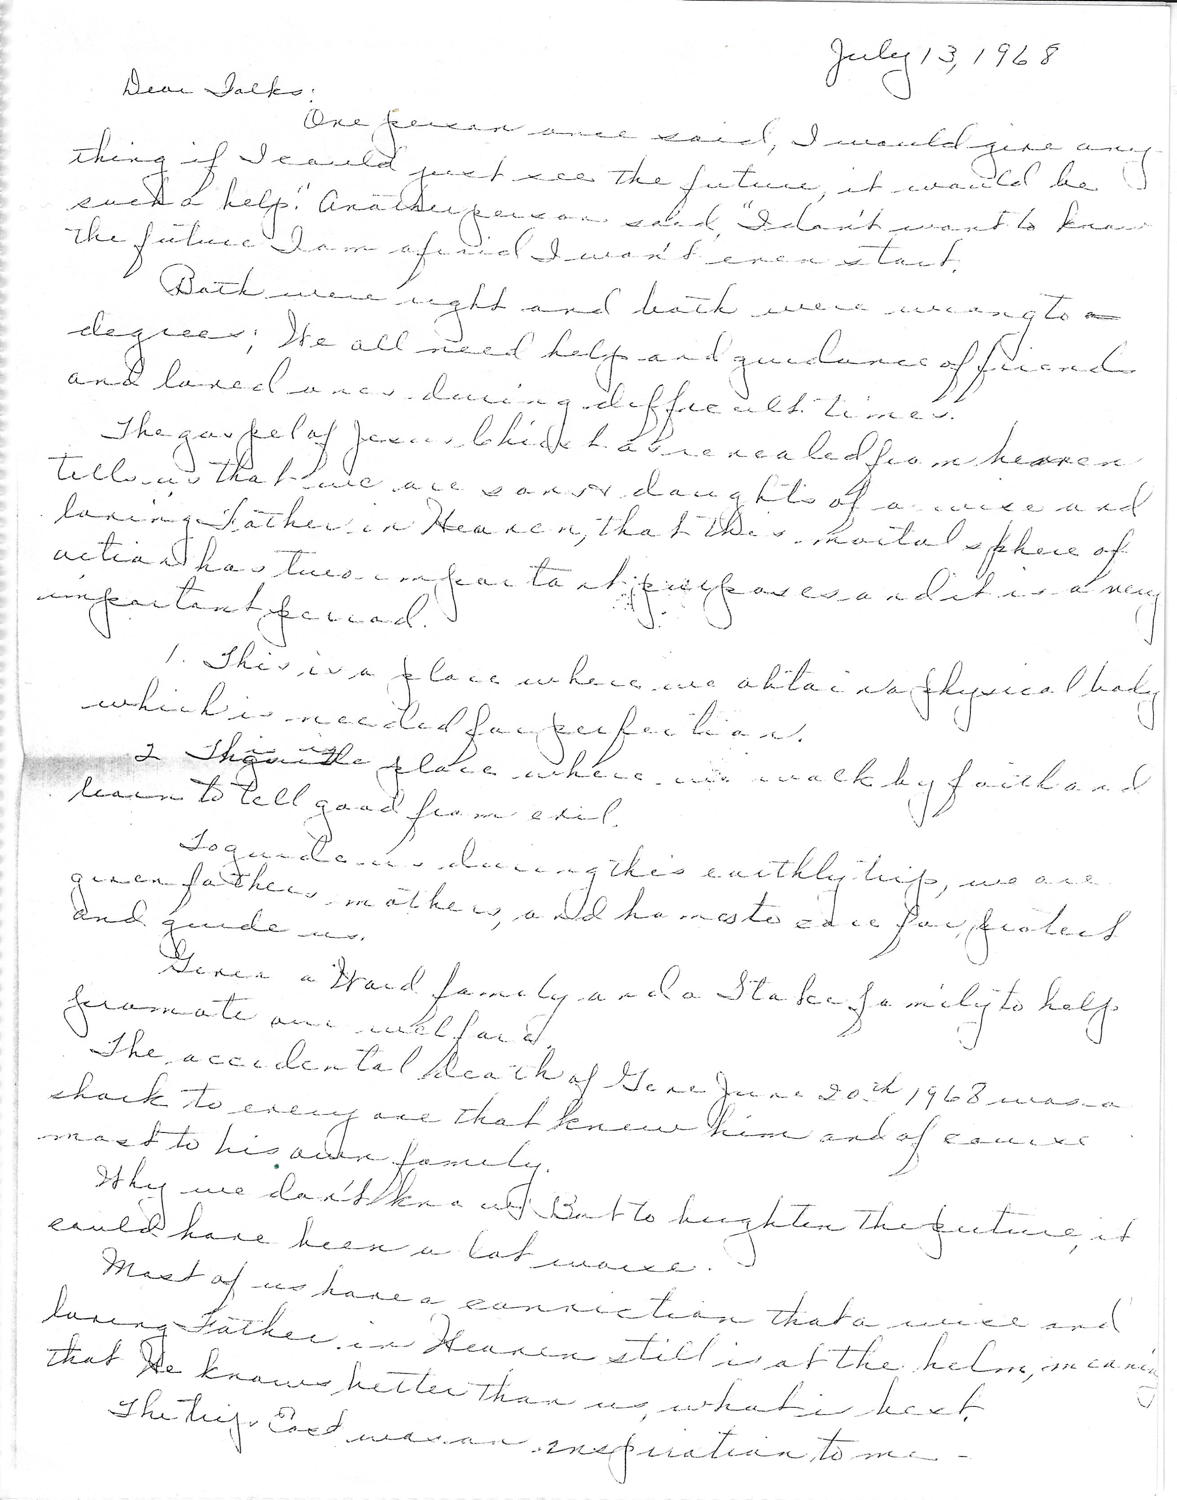 July 13, 1968
Dear Folks:
One person once said, I would give any
thing if I could just see the future, it would be
such a help." Another person said, "I don't want to know
the future I am afriid I won't even start.
Both were right and both were wrong to a
degrees; We all need help and guidance of friends
and loved ones during difficult times.
The gospel of Jesus Christ has revealed from heaven
tells us that we are sons & daughts of a wise and
loving Father in Heaven, that this mortal sphere of
action has two important purposes and it is a very
important period.
1. This is a place where we obtain a physical body
which is needed for perfection.
2 This is the place where we walk by faith and
learn to tell good from evil.
To guide us during this earthly trip, we are
given fathers, mothers, and homes to care for, protect
and guide us.
Given a Ward family and a Stake family to help
promote our welfare.
The accidental death of Gene June 20th 1968 was a
shock to every one that knew him and of course
most to his own family.
Why we don't know. But to brighten the future, it
could have been a lot worse.
Most of us have a conviction that a wise and
loving Father in Heaven still is at the helm, meaning
that He knows better than us, what is best.
The trip East was an inspiration to me -